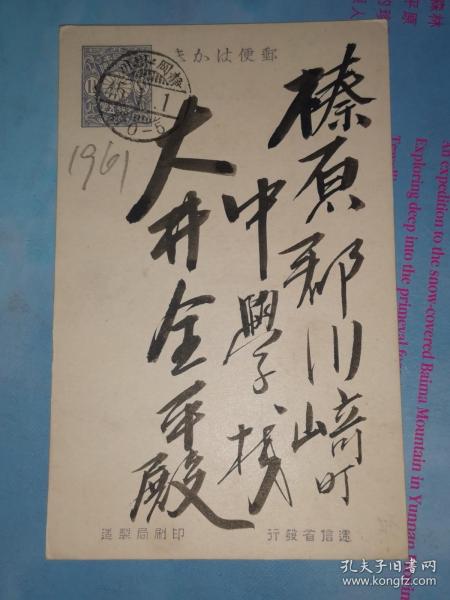 郵便はかき
榛原郡川崎町
中學校
大井全平殿
45
.1
0-5
1961
遞信省發行
印刷局製造
森林
平原
An expedition to the snow-covered Baima Mountain in Yunnan
Exploring deep into the primeval
孔夫子旧书网
www.kongfz.com